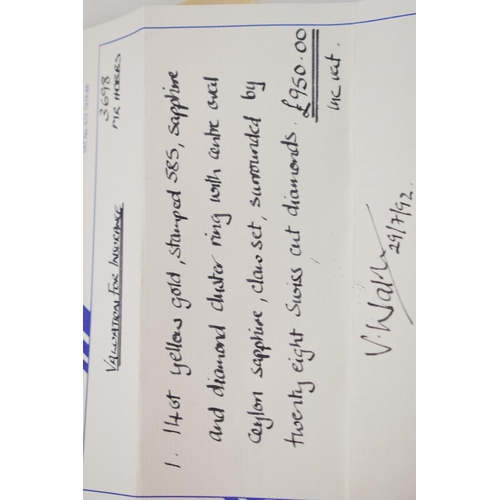 3698
MR HOBBS
VALUATION FOR INSURANCE
1. 14ct yellow gold, stamped 585, sapphire
and diamond cluster ring with centre oval
ceylon sapphire, claw set, surrounded by
twenty eight Swiss cut diamonds. £950.00
inc vat.
29/7/92